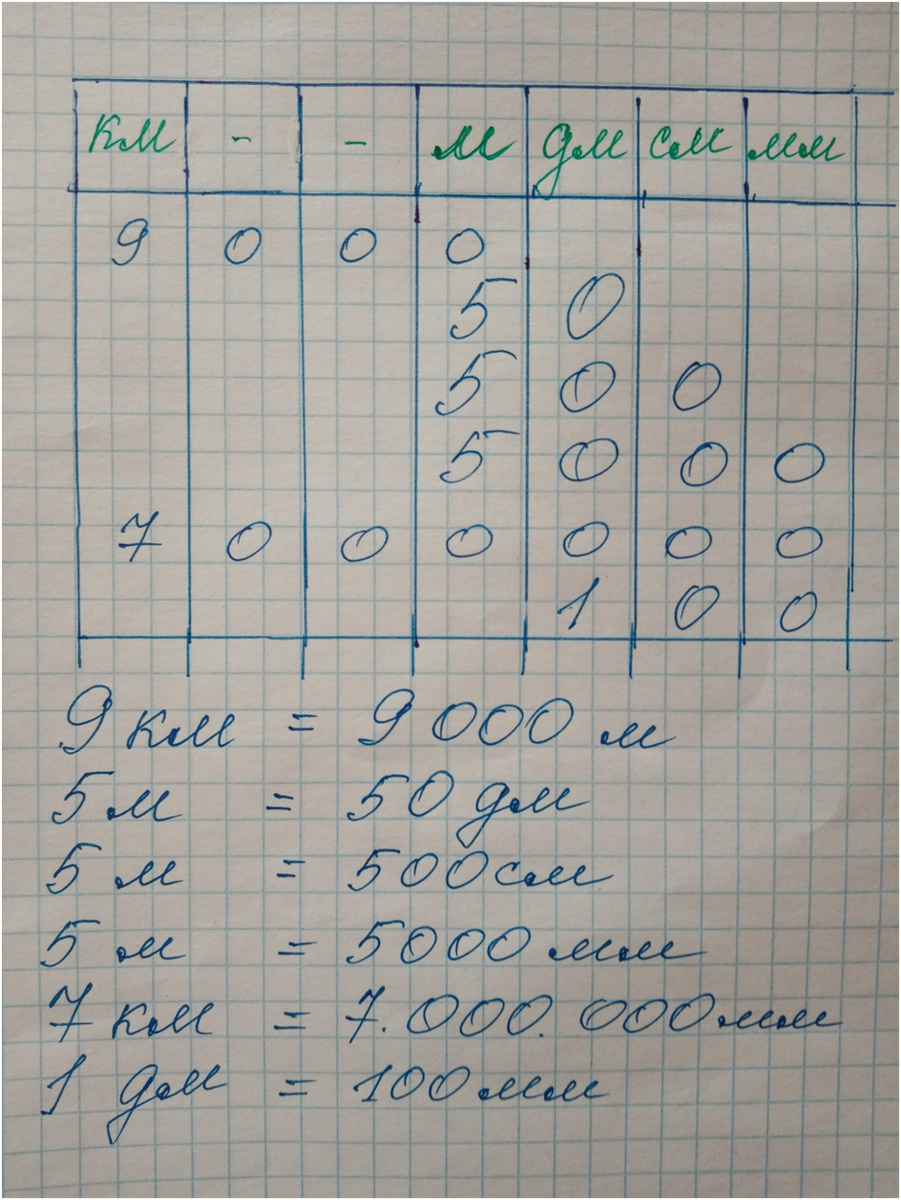 км - - м дм см мм
9 0 0 0
5 0
5 0 0
5 0 0 0
7 0 0 0 0 0 0
1 0 0
9 км = 9 000 м
5 м = 50 дм
5 м = 500 см
5 м = 5000 мм
7 км = 7.000.000 мм
1 дм = 100 мм